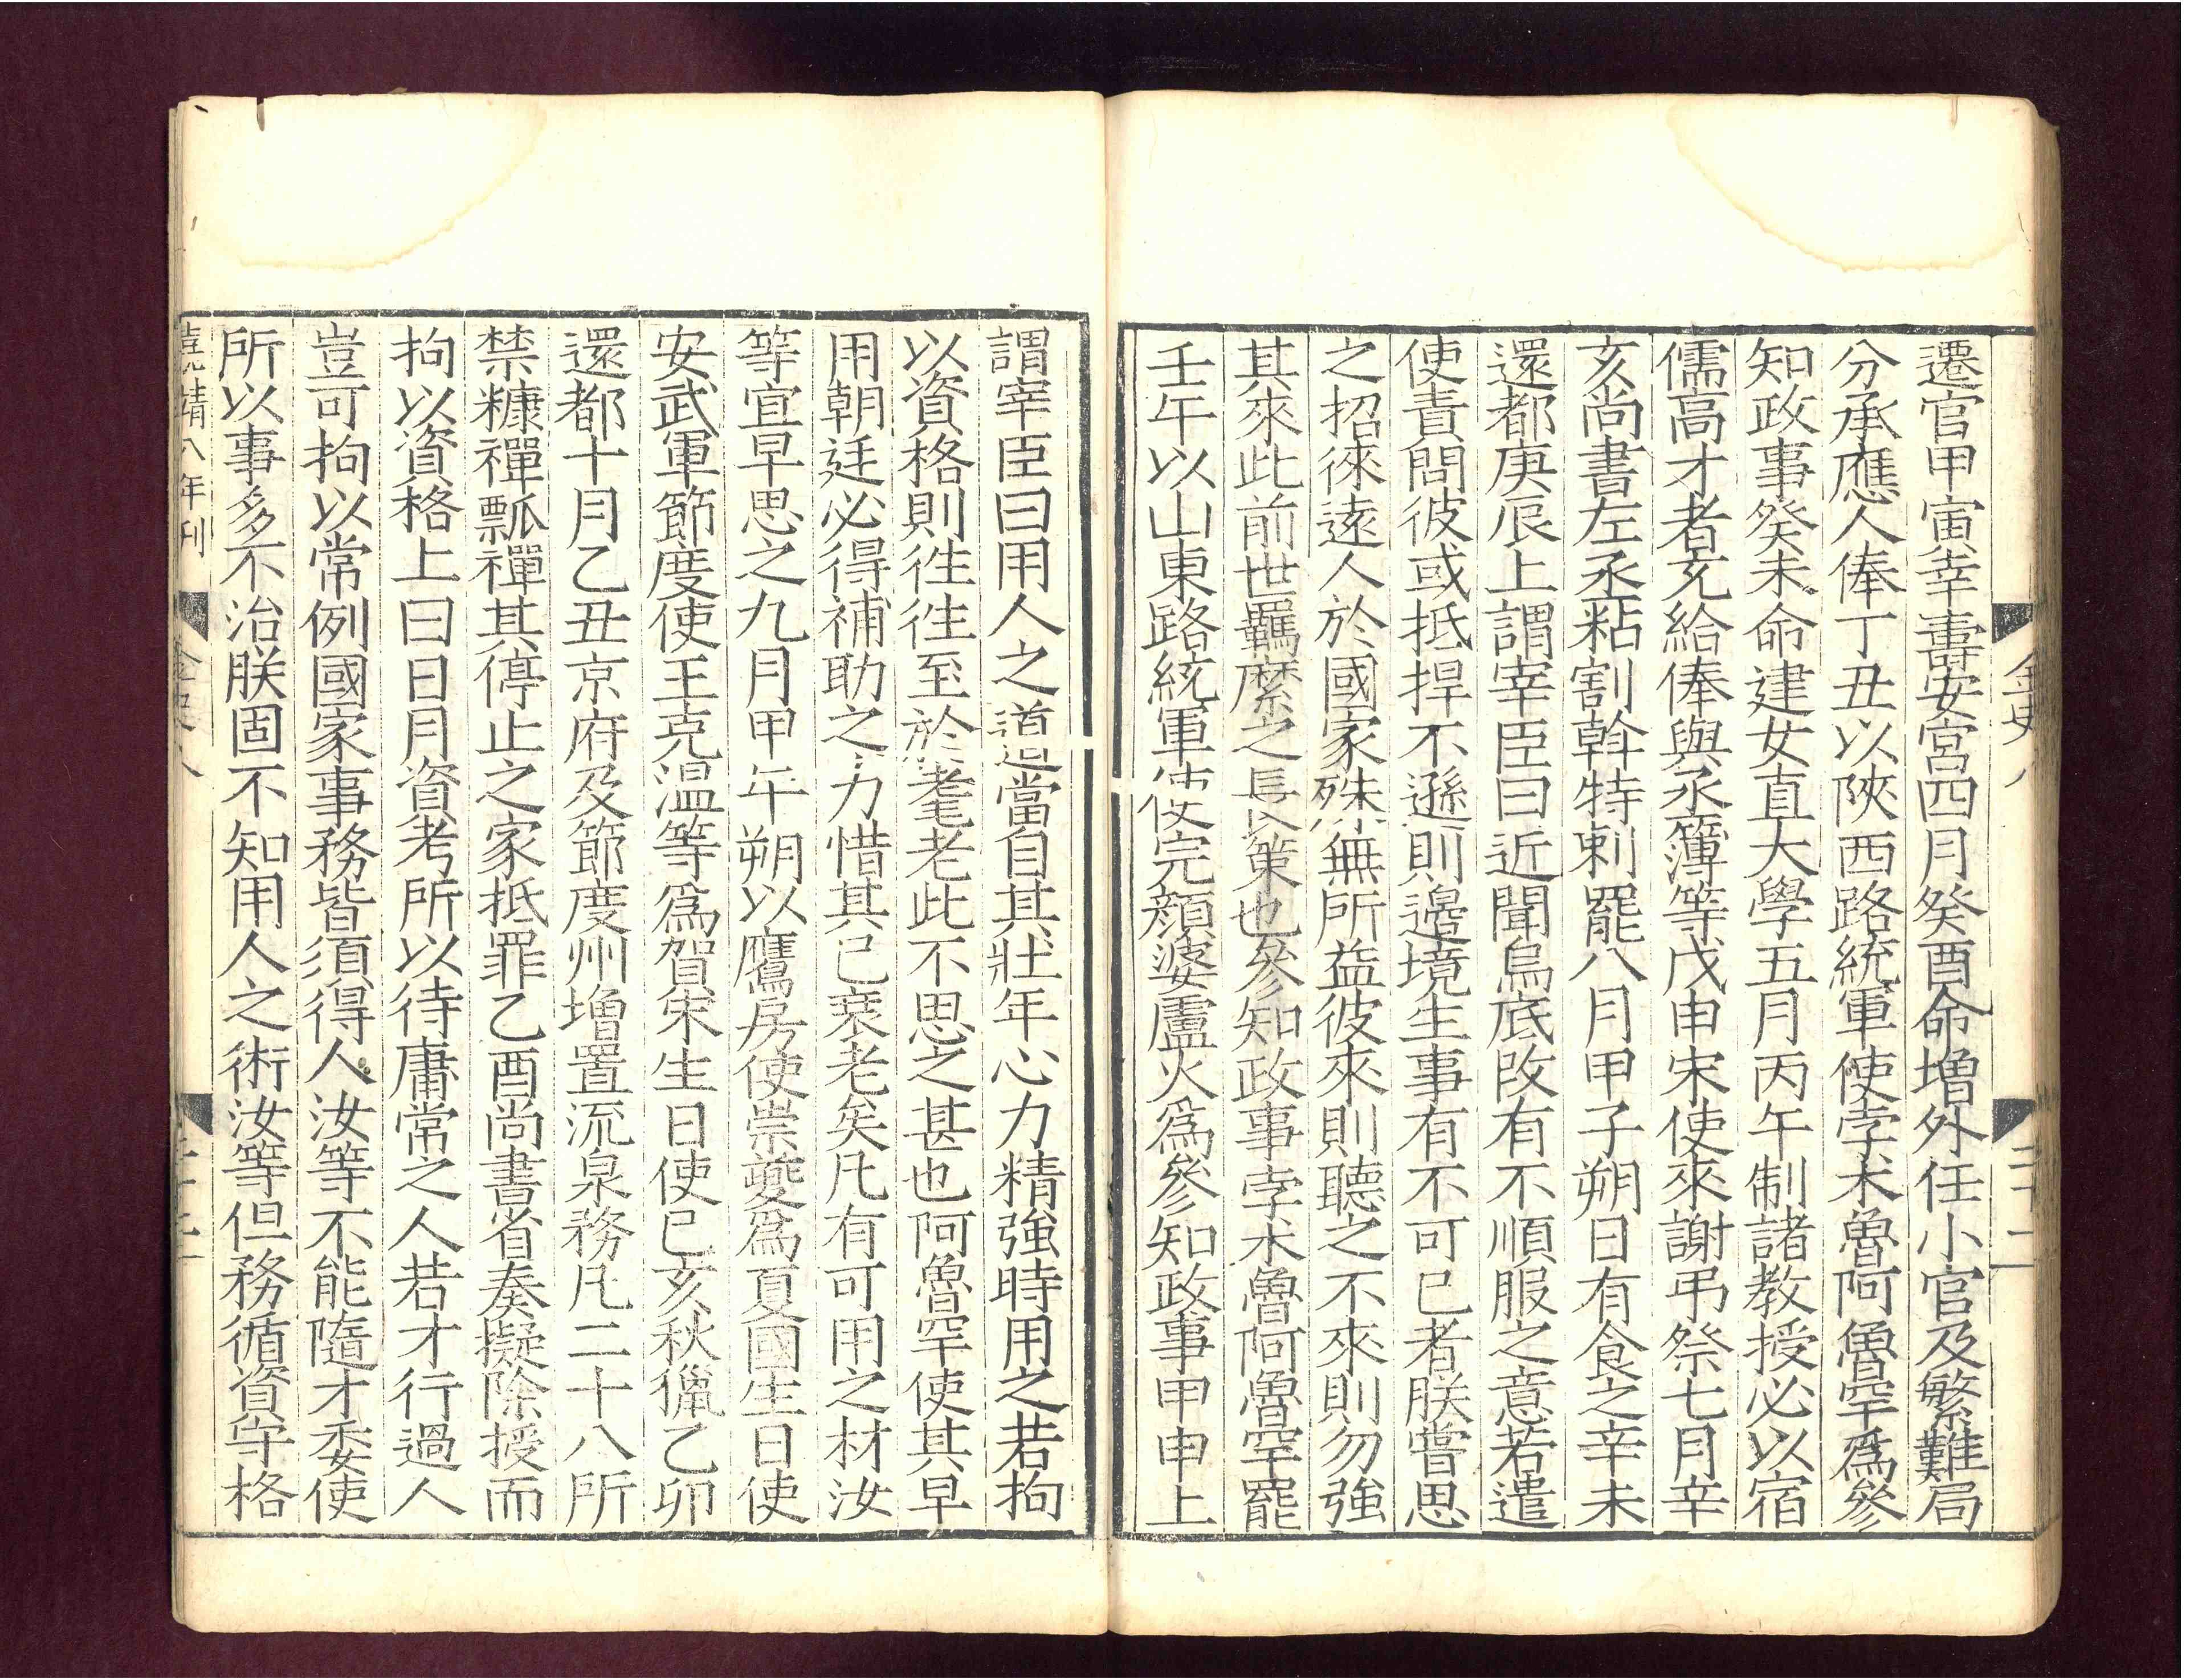 金史八
二十二
遷官甲寅幸壽安宮四月癸酉命增外任小官及繁難局
分承應人俸丁丑以陝西路統軍使孛朮魯阿魯罕爲參
知政事癸未命建女直大學五月丙午制諸教授必以宿
儒高才者充給俸與丞簿等戊申宋使來謝弔祭七月辛
亥尚書左丞粘割斡特剌罷八月甲子朔日有食之辛未
還都庚辰上謂宰臣曰近聞烏底改有不順服之意若遣
使責問彼或抵捍不遜則邊境生事有不可已者朕嘗思
之招徠遠人於國家殊無所益彼來則聽之不來則勿強
其來此前世羈縻之長策也參知政事孛朮魯阿魯罕罷
壬午以山東路統軍使完顏婆盧火爲參知政事甲申上
謂宰臣曰用人之道當自其壯年心力精強時用之若拘
以資格則徃徃至於耄老此不思之甚也阿魯罕使其早
用朝廷必得補助之力惜其已衰老矣凡有可用之材汝
等宜早思之九月甲午朔以鷹房使崇夔爲夏國生日使
安武軍節度使王克温等爲賀宋生日使已亥秋獵乙卯
還都十月乙丑京府及節度州增置流泉務凡二十八所
禁糠禪瓢禪其停止之家抵罪乙酉尚書省奏擬除授而
拘以資格上曰日月資考所以待庸常之人若才行過人
豈可拘以常例國家事務皆須得人汝等不能隨才委使
所以事多不治朕固不知用人之術汝等但務循資守格
嘉靖八年刊
金史八